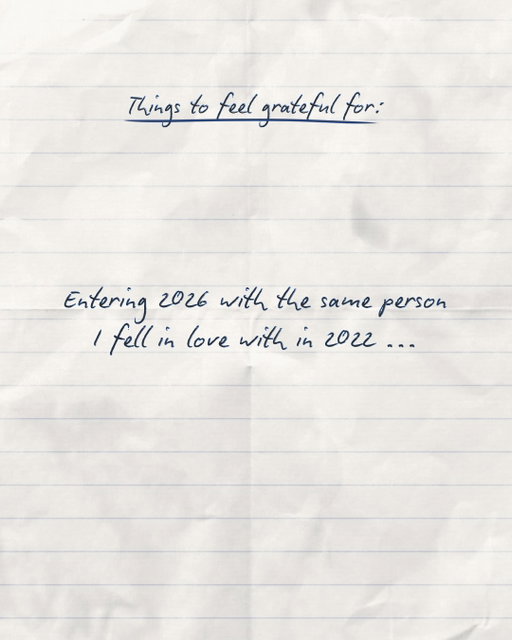 Things to feel grateful for:
Entering 2026 with the same person
I fell in love with in 2022 ...